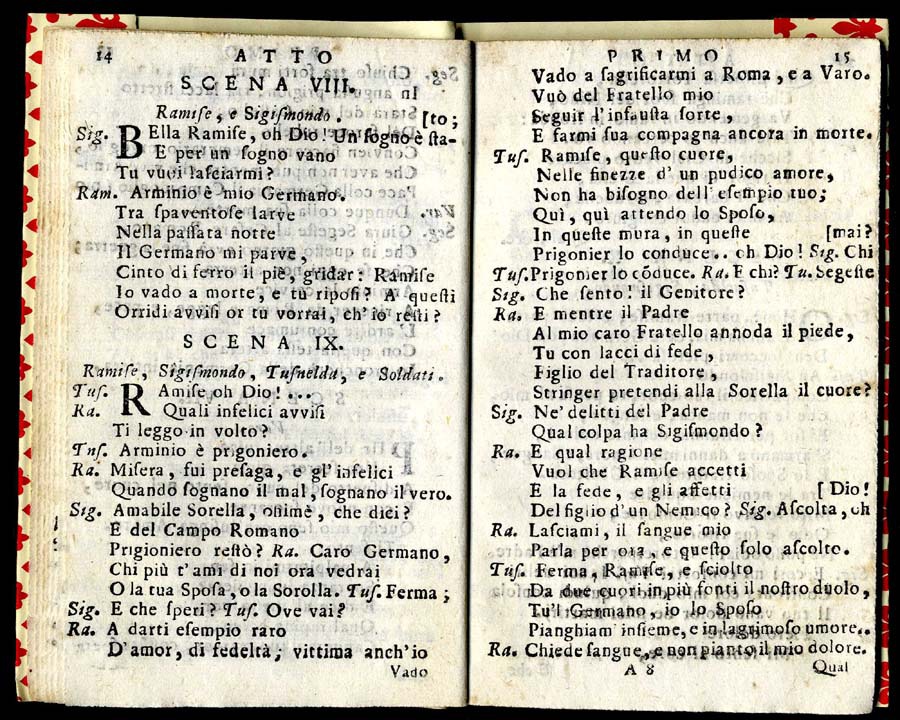 14 ATTO
SCENA VIII.
Ramiſe, e Sigiſmondo. [to;
Sig. BElla Ramiſe, oh Dio! Un ſogno è ſta-
E per un ſogno vano
Tu vuoi laſciarmi?
Ram. Arminio è mio Germano.
Tra ſpaventoſe larve
Nella paſſata notte
Il Germano mi parve,
Cinto di ferro il piè, gridar: Ramiſe
Io vado a morte, e tu ripoſi? A queſti
Orridi avviſi or tu vorrai, ch'io reſti?
SCENA IX.
Ramiſe, Sigiſmondo, Tuſnelda, e Soldati.
Tuſ. RAmiſe, oh Dio! ...
Ra. Quali infelici avviſi
Ti leggo in volto?
Tuſ. Arminio è prigoniero.
Ra. Miſera, fui preſaga, e gl' infelici
Quando ſognano il mal, ſognano il vero.
Sig. Amabile Sorella, oħimè, che diei?
E del Campo Romano
Prigioniero reſtò? Ra. Caro Germano,
Chi più t'ami di noi ora vedrai
O la tua Spoſa, o la Sorolla. Tuſ. Ferma;
Sig. E che ſperi? Tuſ. Ove vai?
Ra. A darti eſempio raro
D'amor, di fedeltà; vittima anch'io
Vado
PRIMO 15
Vado a ſagrificarmi a Roma, e a Varo.
Vuò del Fratello mio
Seguir l'infauſta ſorte,
E farmi ſua compagna ancora in morte.
Tuſ. Ramiſe, queſto cuore,
Nelle finezze d'un pudico amore,
Non ha biſogno dell'eſempio tuo;
Quì, quì attendo lo Spoſo,
In queſte mura, in queſte [mai?
Prigonier lo conduce.. oh Dio! Sig. Chi
Tuſ. Prigonier lo cõduce. Ra. E chi? Tu. Segeſte
Sig. Che ſento! il Genitore?
Ra. E mentre il Padre
Al mio caro Fratello annoda il piede,
Tu con lacci di fede,
Figlio del Traditore,
Stringer pretendi alla Sorella il cuore?
Sig. Ne' delitti del Padre
Qual colpa ha Sigiſmondo?
Ra. E qual ragione
Vuol che Ramiſe accetti
E la fede, e gli affetti [Dio!
Del figlio d'un Nemico? Sig. Aſcolta, oh
Ra. Laſciami, il ſangue mio
Parla per ora, e queſto ſolo aſcolto.
Tuſ. Ferma, Ramiſe, e ſciolto
Da due cuori in più fonti il noſtro duolo,
Tu'l Germano, io lo Spoſo
Pianghiam' inſieme, e in lagrimoſo umore..
Ra. Chiede ſangue, e non pianto il mio dolore.
A 8 Qual